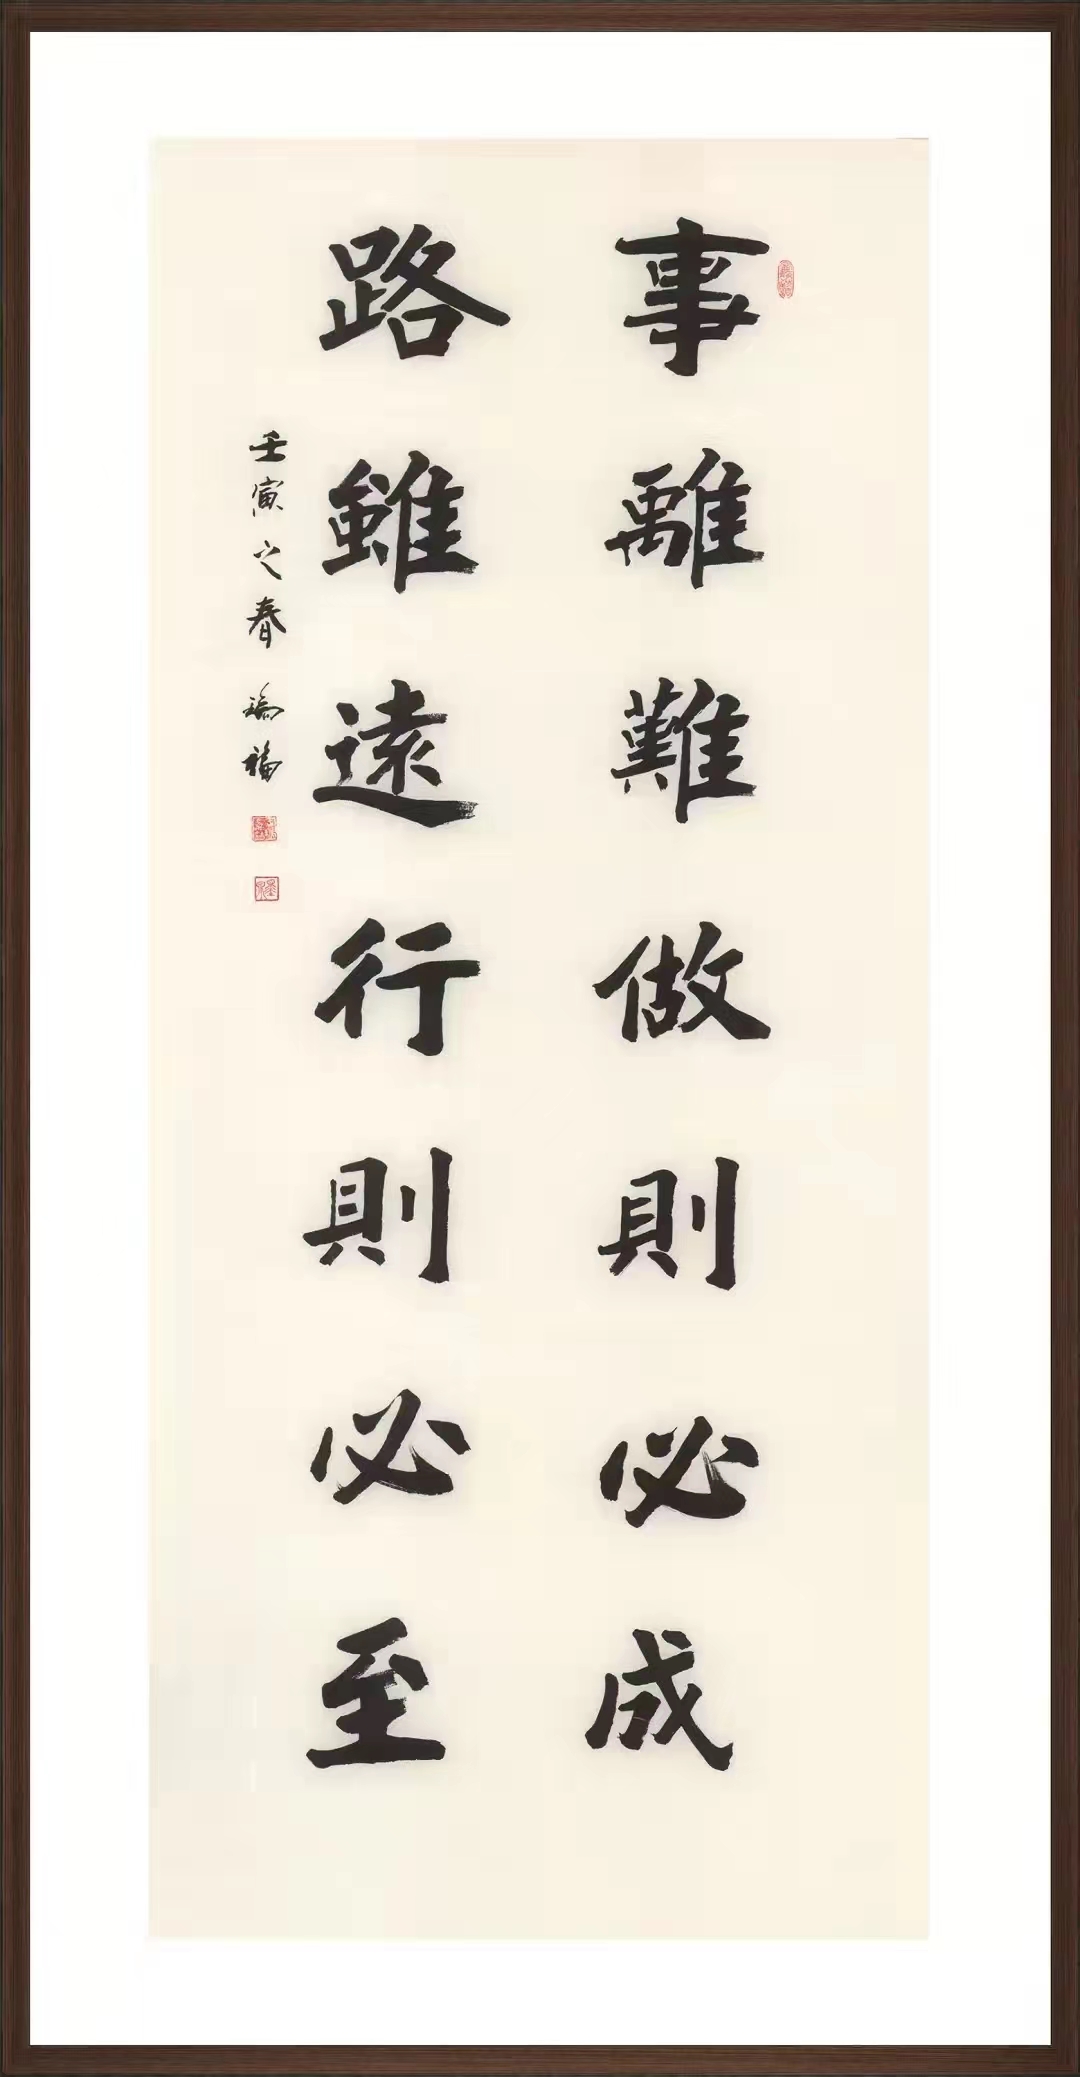 事雖難做則必成
路雖遠行則必至
壬寅之春 福